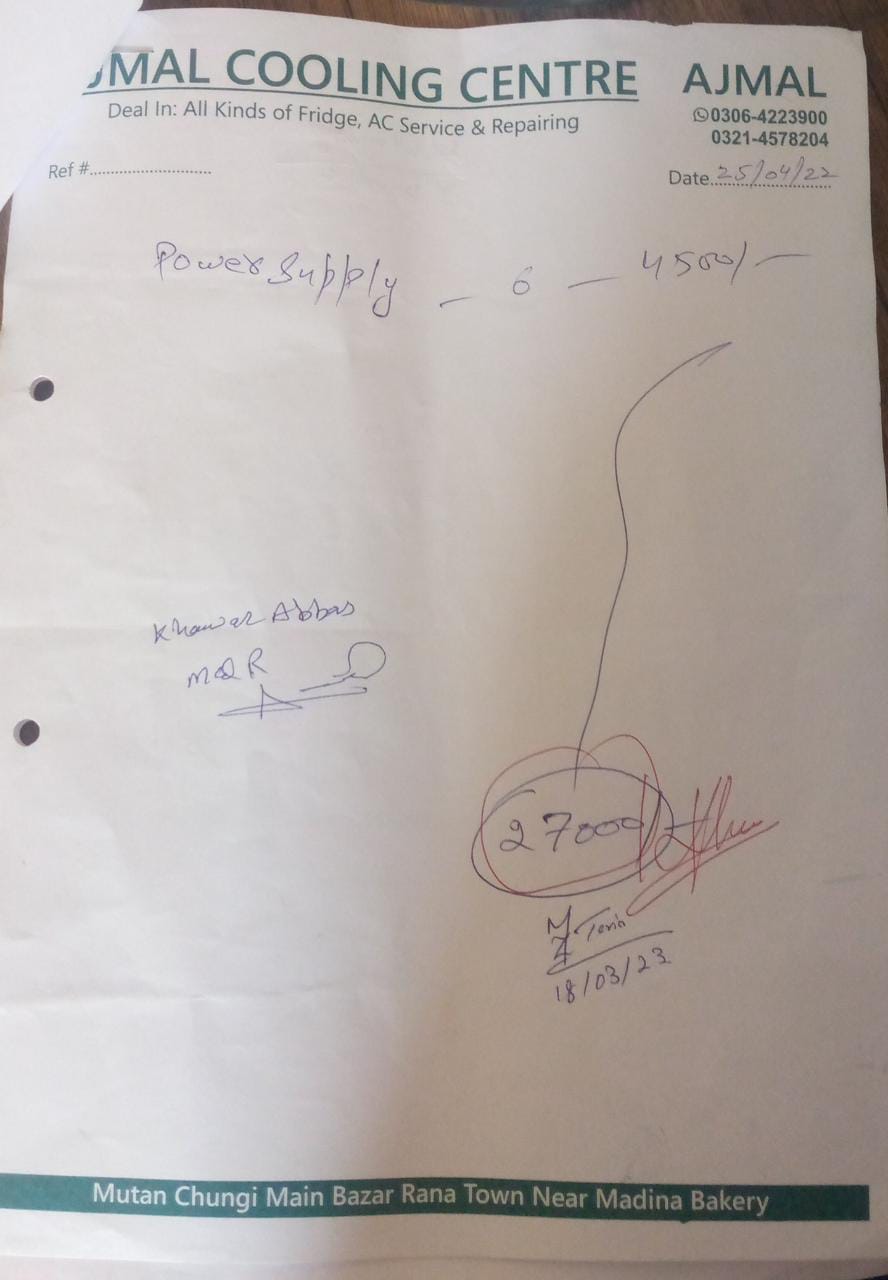 JMAL COOLING CENTRE
Deal In: All Kinds of Fridge, AC Service & Repairing
AJMAL
0306-4223900
0321-4578204
Ref #..............................
Date..25/04/22
Power Supply - 6 - 4500/-
Khawar Abbas
MQR
27000
18/03/23
Mutan Chungi Main Bazar Rana Town Near Madina Bakery